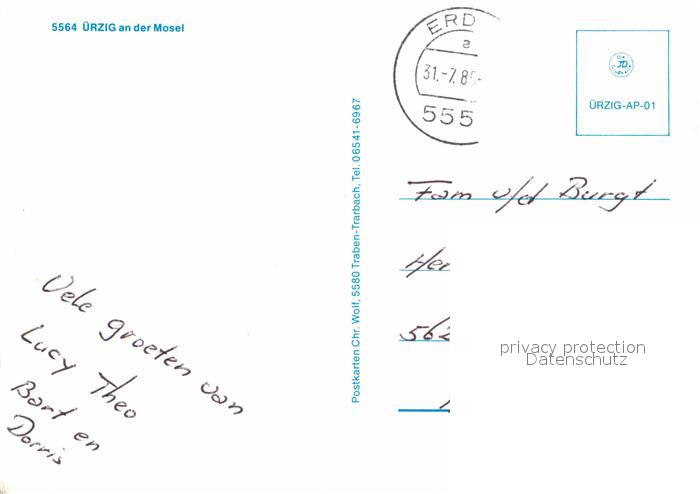 5564 ÜRZIG an der Mosel
ERD
a
31.-7.85-
555
JD
ÜRZIG-AP-01
Postkarten Chr. Wolf, 5580 Traben-Trarbach, Tel. 06541-6967
Fam v/d Burgt
Hei
562
privacy protection
Datenschutz
Vele groeten van
Lucy Theo
Bart en
Dorris